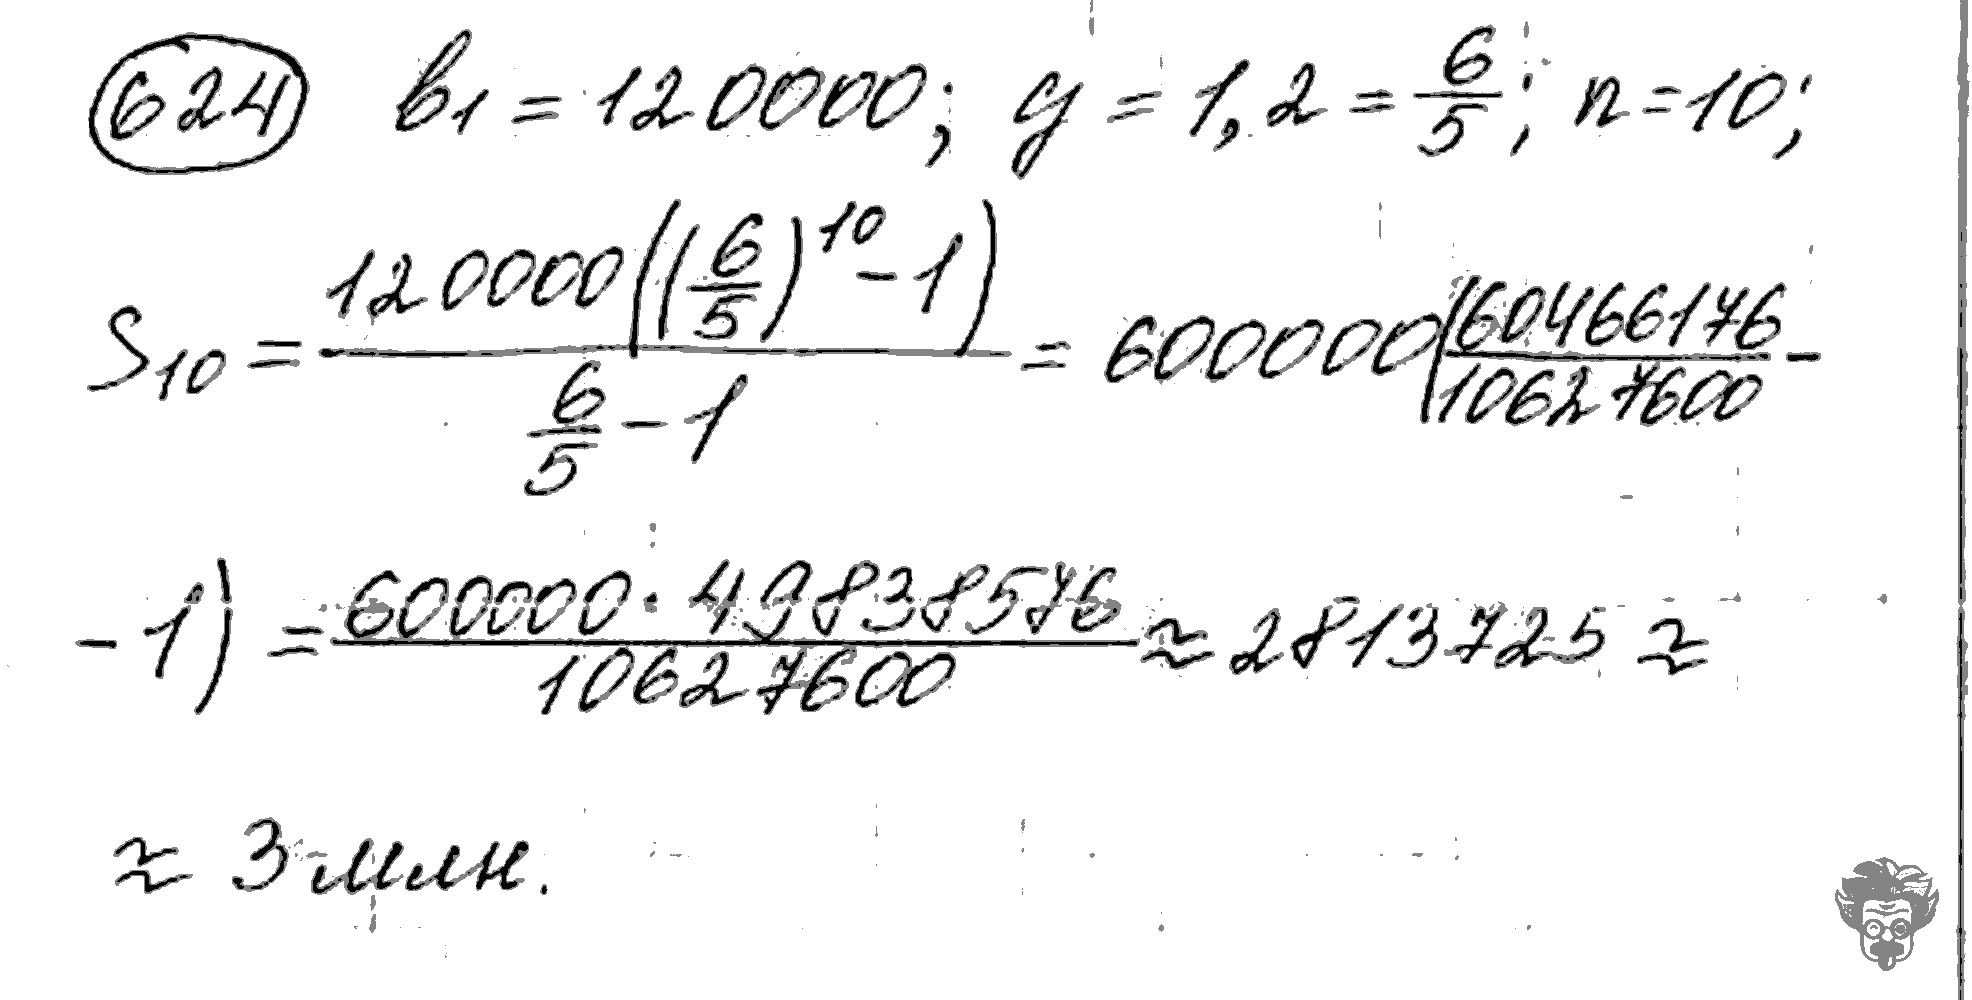 624 b₁ = 120000; q = 1,2 = 6/5; n = 10;
S₁₀ = 120000((6/5)¹⁰ - 1) / (6/5 - 1) = 600000(60466176/10627600 -
- 1) = 600000 · 49838576 / 10627600 ≈ 2813725 ≈
≈ 3 млн.